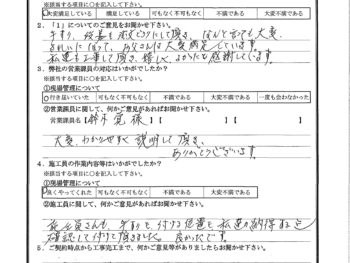 ※該当する項目に○を記入して下さい。
大変満足している 満足している 可もなく不可もなく 不満である 大変不満である
2.「1」についてのご意見をお聞かせ下さい。
手すり、段差もぴったりにして頂き、なんと言っても大変、
よろこんでいて、お父さんは大変満足しています。
私達も工事して頂き、嬉しく、よかったと感謝しています。
3.弊社の営業課員の対応はいかがでしたか?
※該当する項目に○を記入して下さい。
①現場管理について
行き届いていた 可もなく不可もなく 不満である 大変不満である 一度も会わなかった
②営業課員に関して、何かご意見があればお聞かせ下さい。
営業課員名【 鈴木 寛 様 】【 】【 】
大変、わかりやすく説明して頂き、
ありがとうございます。
4.施工員の作業内容等はいかがでしたか?
※該当する項目に○を記入して下さい。
①現場管理について
良くやってくれた 可もなく不可もなく 不満である 大変不満である
②施工員に関して、何かご意見があればお聞かせ下さい。
施工員さんも、手すりを付ける位置も私達が納得するまで
確認して付けて頂きました。良かったです
5.ご契約時点から工事完工まで、何かご意見等がありましたらお聞かせ下さい。